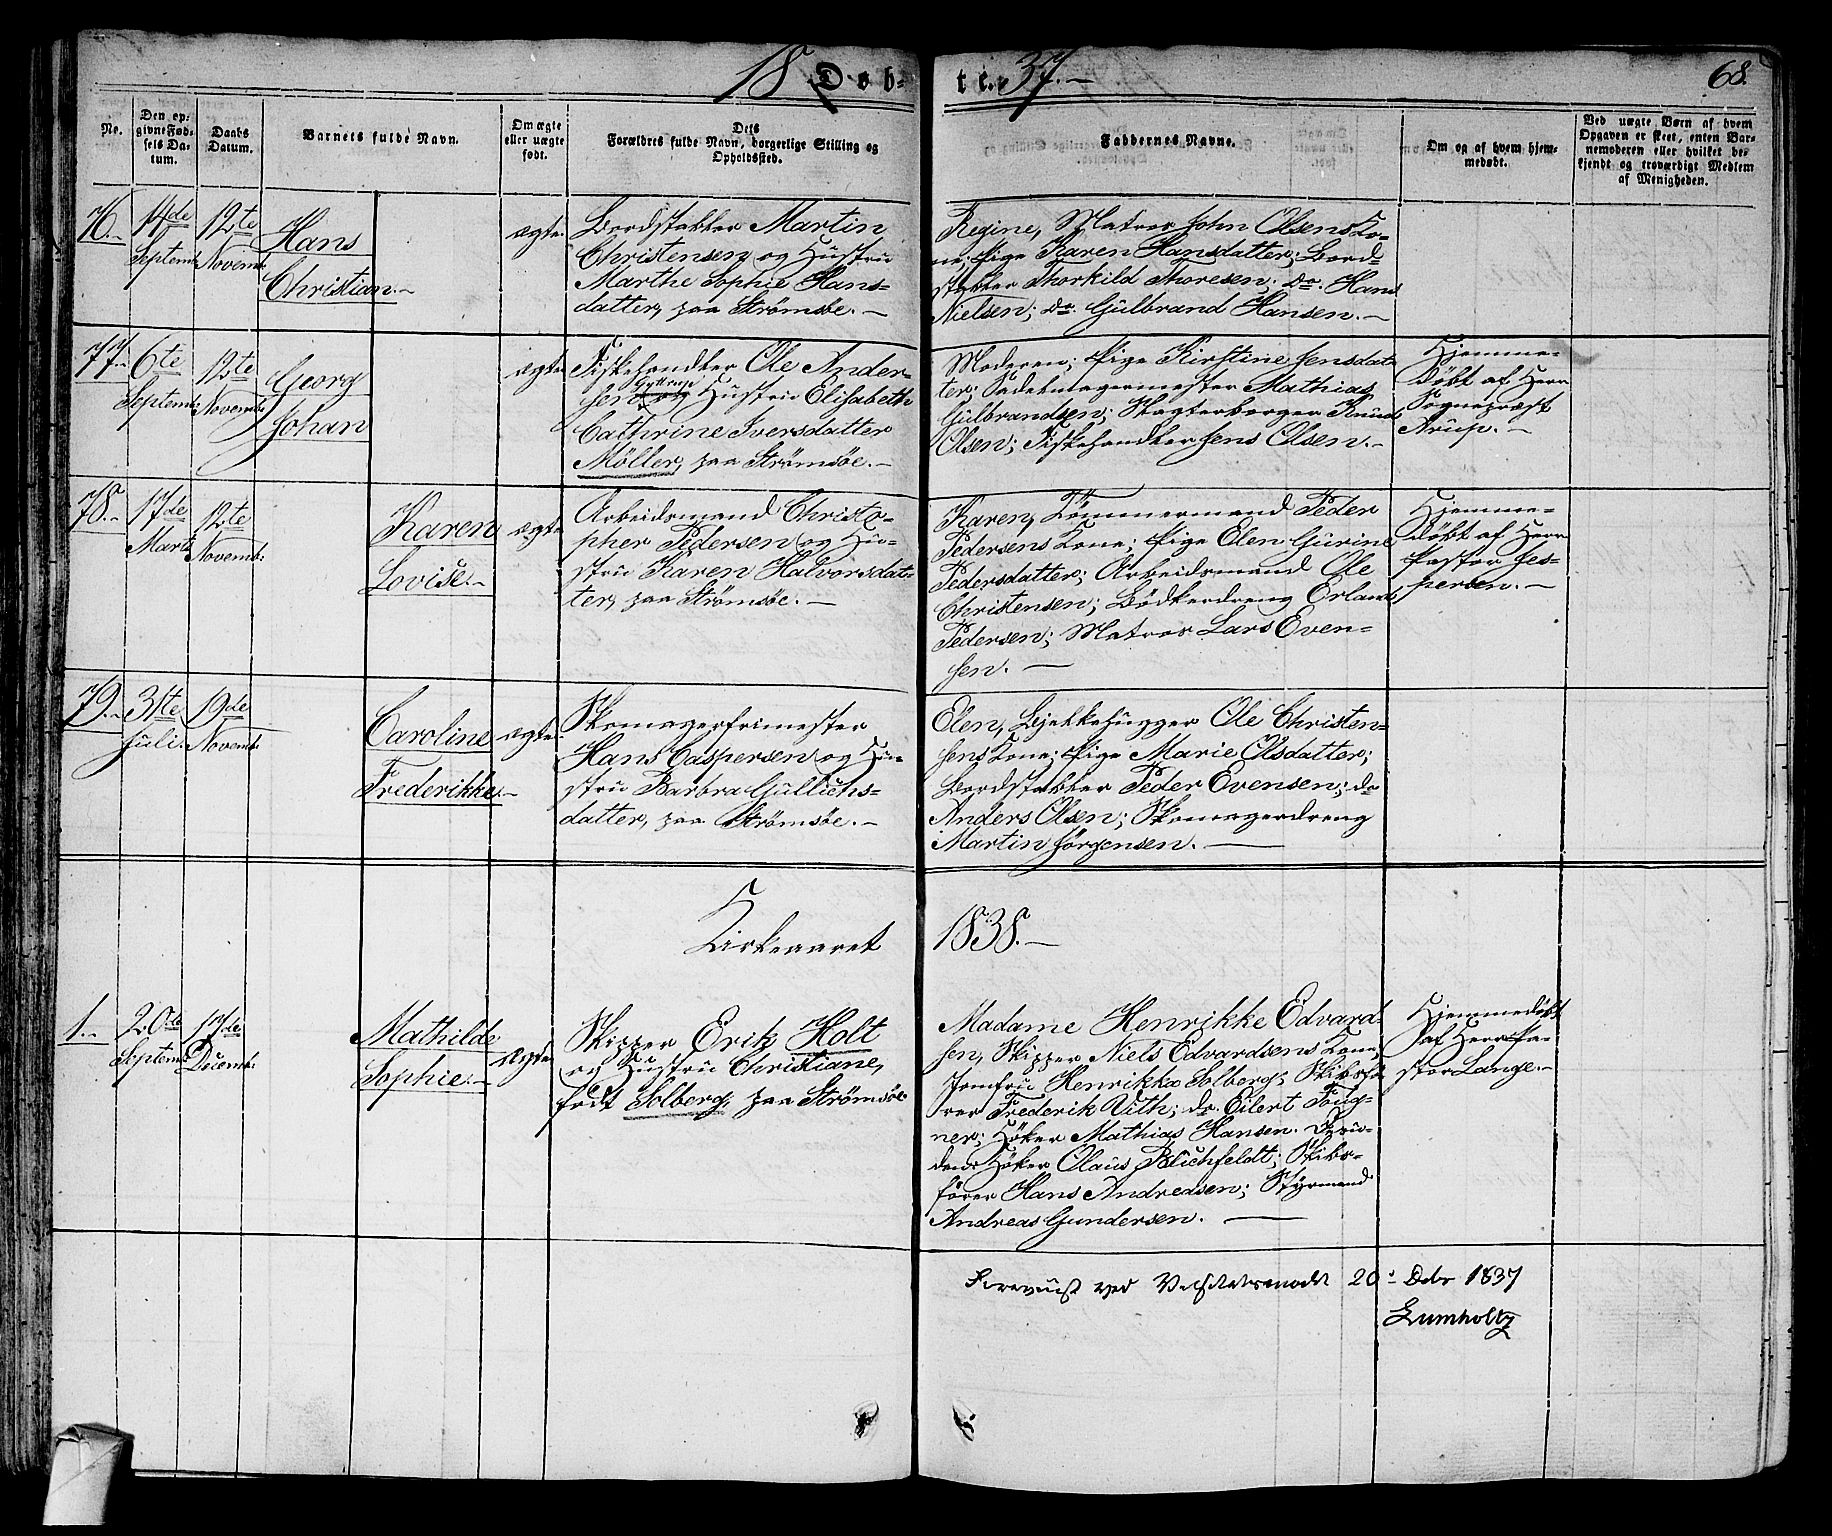 18 Döbte. 37.-
68.
No.
Den opgivne Fødsels Datum.
Daabs Datum.
Barnets fulde Navn.
Om ægte eller uægte født.
Dets Forældres fulde Navn, borgerlige Stilling og Opholdssted.
Faddernes Navne.
Om og af hvem hjemmedøbt.
Ved uægte Børn af hvem Opgaven er skeet, enten Barnemoderen eller hvilket bekjendt og troværdigt Medlem af Menigheden.
76.-
14de Septemb:
12te Novemb:
Hans
Christian.-
ægte.
Bordstabler Martin
Christensen og Hustru
Marthe Sophie Hans-
datter, paa Strømsøe.-
Regine, Matros John Olsens Ko-
ne; Pige Karen Hansdatter; Bord-
stabler Thorkild Thoresen; do. Hans
Nielsen; do. Gulbrand Hansen.-
77.-
6te Septemb:
12te Novemb:
Georg
Johan
ægte
Fiskehandler Ole Ander-
sen og Hustru Elisabeth
Cathrine Iversdatter
Möller, paa Strømsøe.-
Moderen; Pige Kirstine Jensdat-
ter; Sadelmagermester Mathias
Gulbrandsen; Slagterborger Knud
Olsen; Fiskehandler Jens Olsen.-
Hjemme-
døbt af Herr
Sognepræst
Arup.-
78.-
17de Marts
12te Novemb:
Karen
Lovise.-
ægte
Arbeidsmand Christo-
pher Pedersen og Hu-
stru Karen Halvorsdat-
ter, paa Strømsøe.-
Karen, Tömmermand Peder
Pedersens Kone; Pige Elen Gurine
Pedersdatter; Arbeidsmand Ole
Christensen; Bödkerdreng Erland
Pedersen; Matros Lars Even-
sen.-
Hjemme-
døbt af Herr
Pastor Jes-
persen.-
79.-
31te Juli.
19de Novemb:
Caroline
Frederikke.-
ægte
Skomagerfrimester
Hans Caspersen og Hu-
stru Barbra Gullichs-
datter, paa Strømsøe.-
Elen, Bjelkehugger Ole Christen-
sens Kone; Pige Marie Olsdatter;
Bordstabler Peder Evensen; do
Anders Olsen; Skomagerdreng
Martin Jörgensen.-
Kirkeaaret 1838.-
1.-
20de Septemb:
17de Decemb:
Mathilde
Sophie.-
ægte
Skipper Erik Holt
og Hustru Christiane,
født Solberg, paa Strømsøe
Madame Henrikke Edvard-
sen, Skipper Niels Edvardsens Kone;
Jomfru Henrikke Solberg; Skibsfö-
rer Frederik Vith; do. Eilert Foug-
ner; Höker Mathias Hansen.
Höker Claus Blichfeldt; Skibs-
förer Hans Andreasen; Styrmand
Andreas Gundersen.-
Hjemmedøbt
af Herr Pa-
stor Lange.-
Foreviist ved 20: Debr 1837
Lumholtz